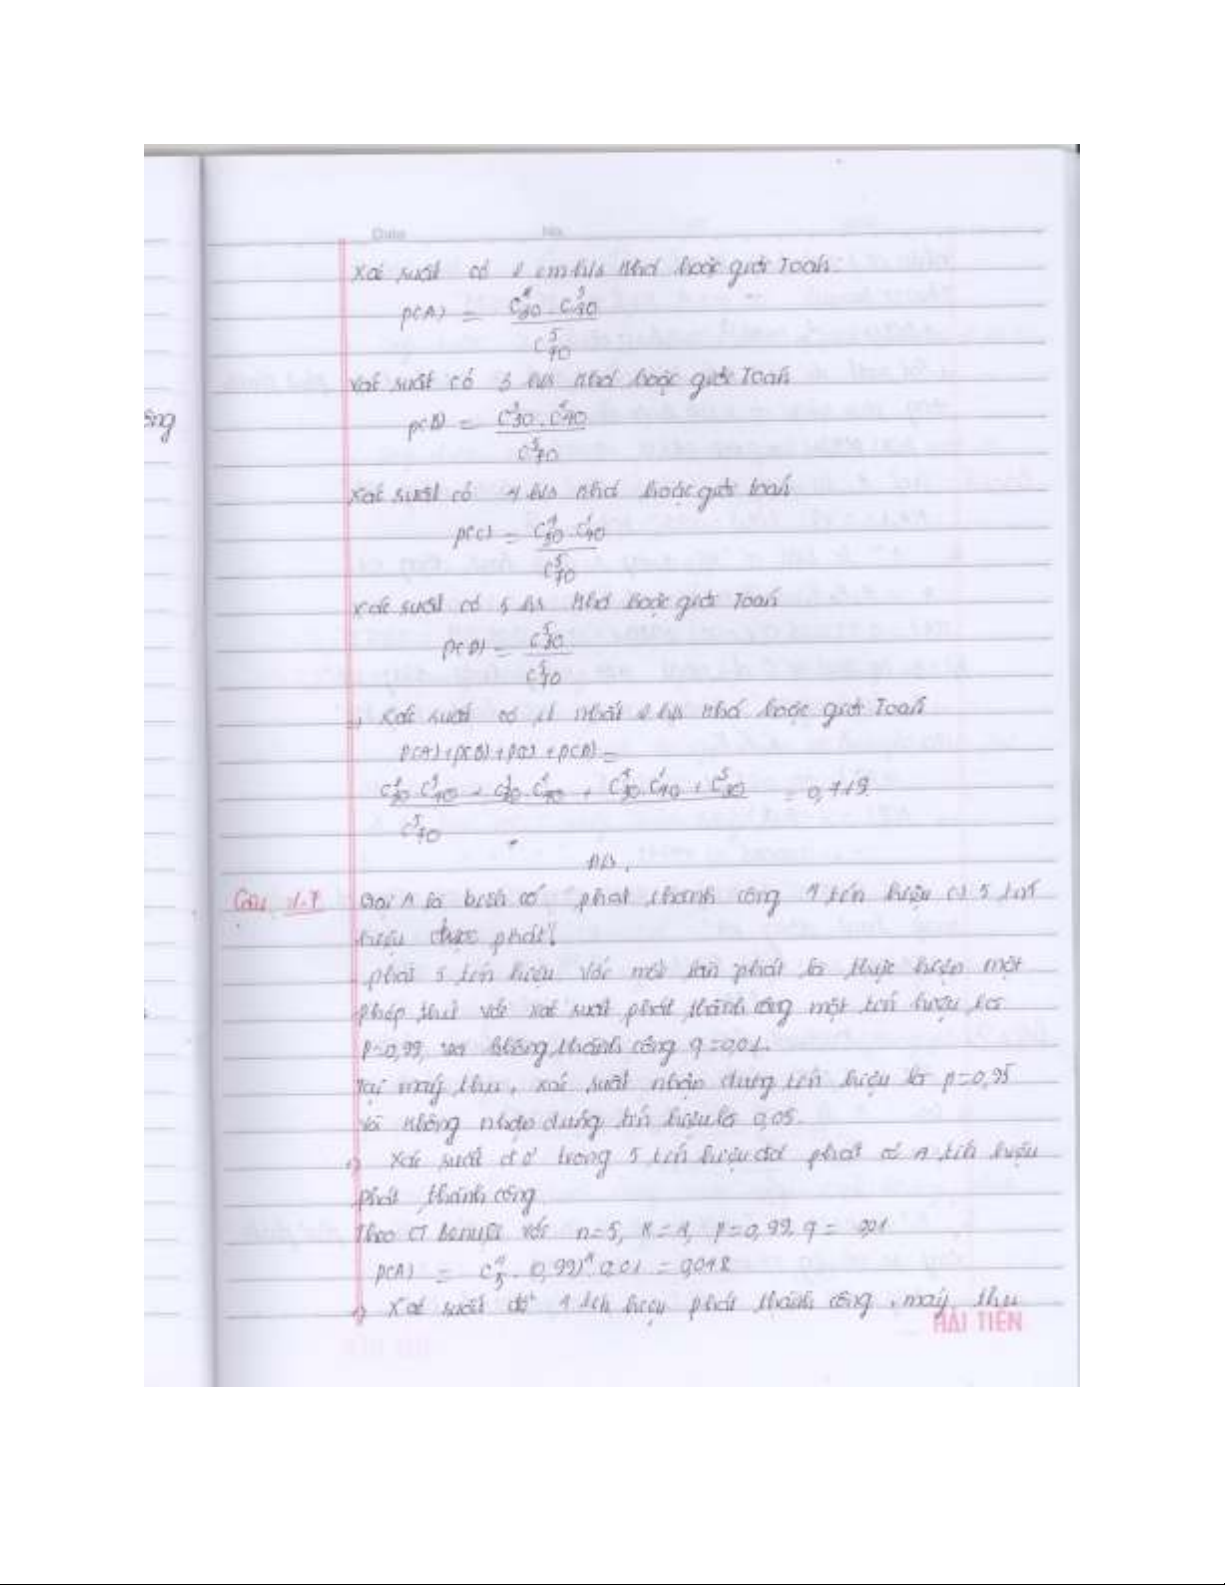 Date No.
Xác suất có 2 em h/s khá hoặc giỏi Toán.
P(A) = C²30 . C³40
C⁵70
Xác suất có 3 h/s khá hoặc giỏi Toán
P(B) = C³30 . C²40
C⁵70
ông
Xác suất có 4 h/s khá hoặc giỏi toán
P(C) = C⁴30 . C¹40
C⁵70
Xác suất có 5 h/s khá hoặc giỏi Toán
P(D) = C⁵30
C⁵70
Xác suất có ít nhất 2 h/s khá hoặc giỏi Toán
P(A) + P(B) + P(C) + P(D) =
C²30 . C³40 + C³30 . C²40 + C⁴30 . C¹40 + C⁵30 =
C⁵70
Câu Gọi A là biến cố "phát thành công 4 tín hiệu 5 tín
hiệu được phát"
phát 5 tín hiệu với mỗi lần phát là thực hiện một
phép thử với xác suất phát thành công một tín hiệu là
P=0,99, không thành công q=0,01.
Tại máy thu, xác suất nhận đúng tín hiệu là p=0,95
và không nhận đúng tín hiệu là 0,05.
Xác suất để trong 5 tín hiệu phát có 4 tín hiệu
phát thành công
Theo CT Bernulli với n=5, K=4, p=0,99, q = 0,01
P(A) = C⁴5 . (0,99)⁴ 0,01 = 0,048
Xác suất để 4 tín hiệu phát thành công, máy thu
HẢI TIẾN